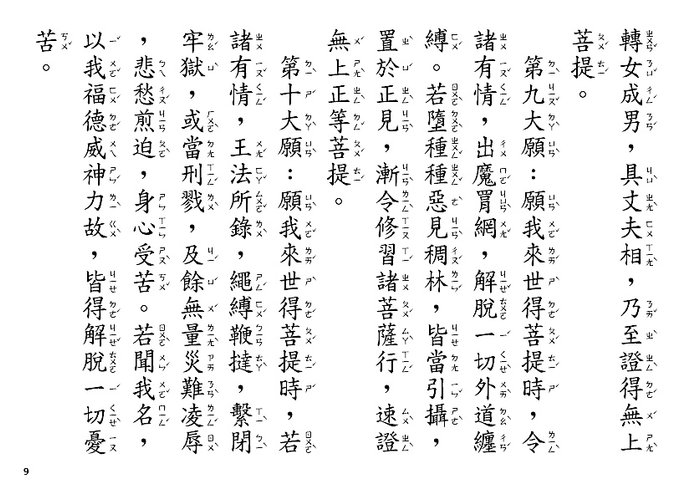 轉女成男，具丈夫相，乃至證得無上
菩提。
第九大願：願我來世得菩提時，令
諸有情，出魔罥網，解脫一切外道纏
縛。若墮種種惡見稠林，皆當引攝，
置於正見，漸令修習諸菩薩行，速證
無上正等菩提。
第十大願：願我來世得菩提時，若
諸有情，王法所錄，繩縛鞭撻，繫閉
牢獄，或當刑戮，及餘無量災難凌辱
，悲愁煎迫，身心受苦。若聞我名，
以我福德威神力故，皆得解脫一切憂
苦。
9